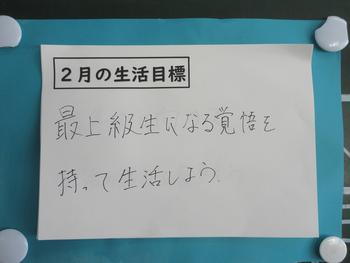 ２月の生活目標
最上級生になる覚悟を
持って生活しよう.